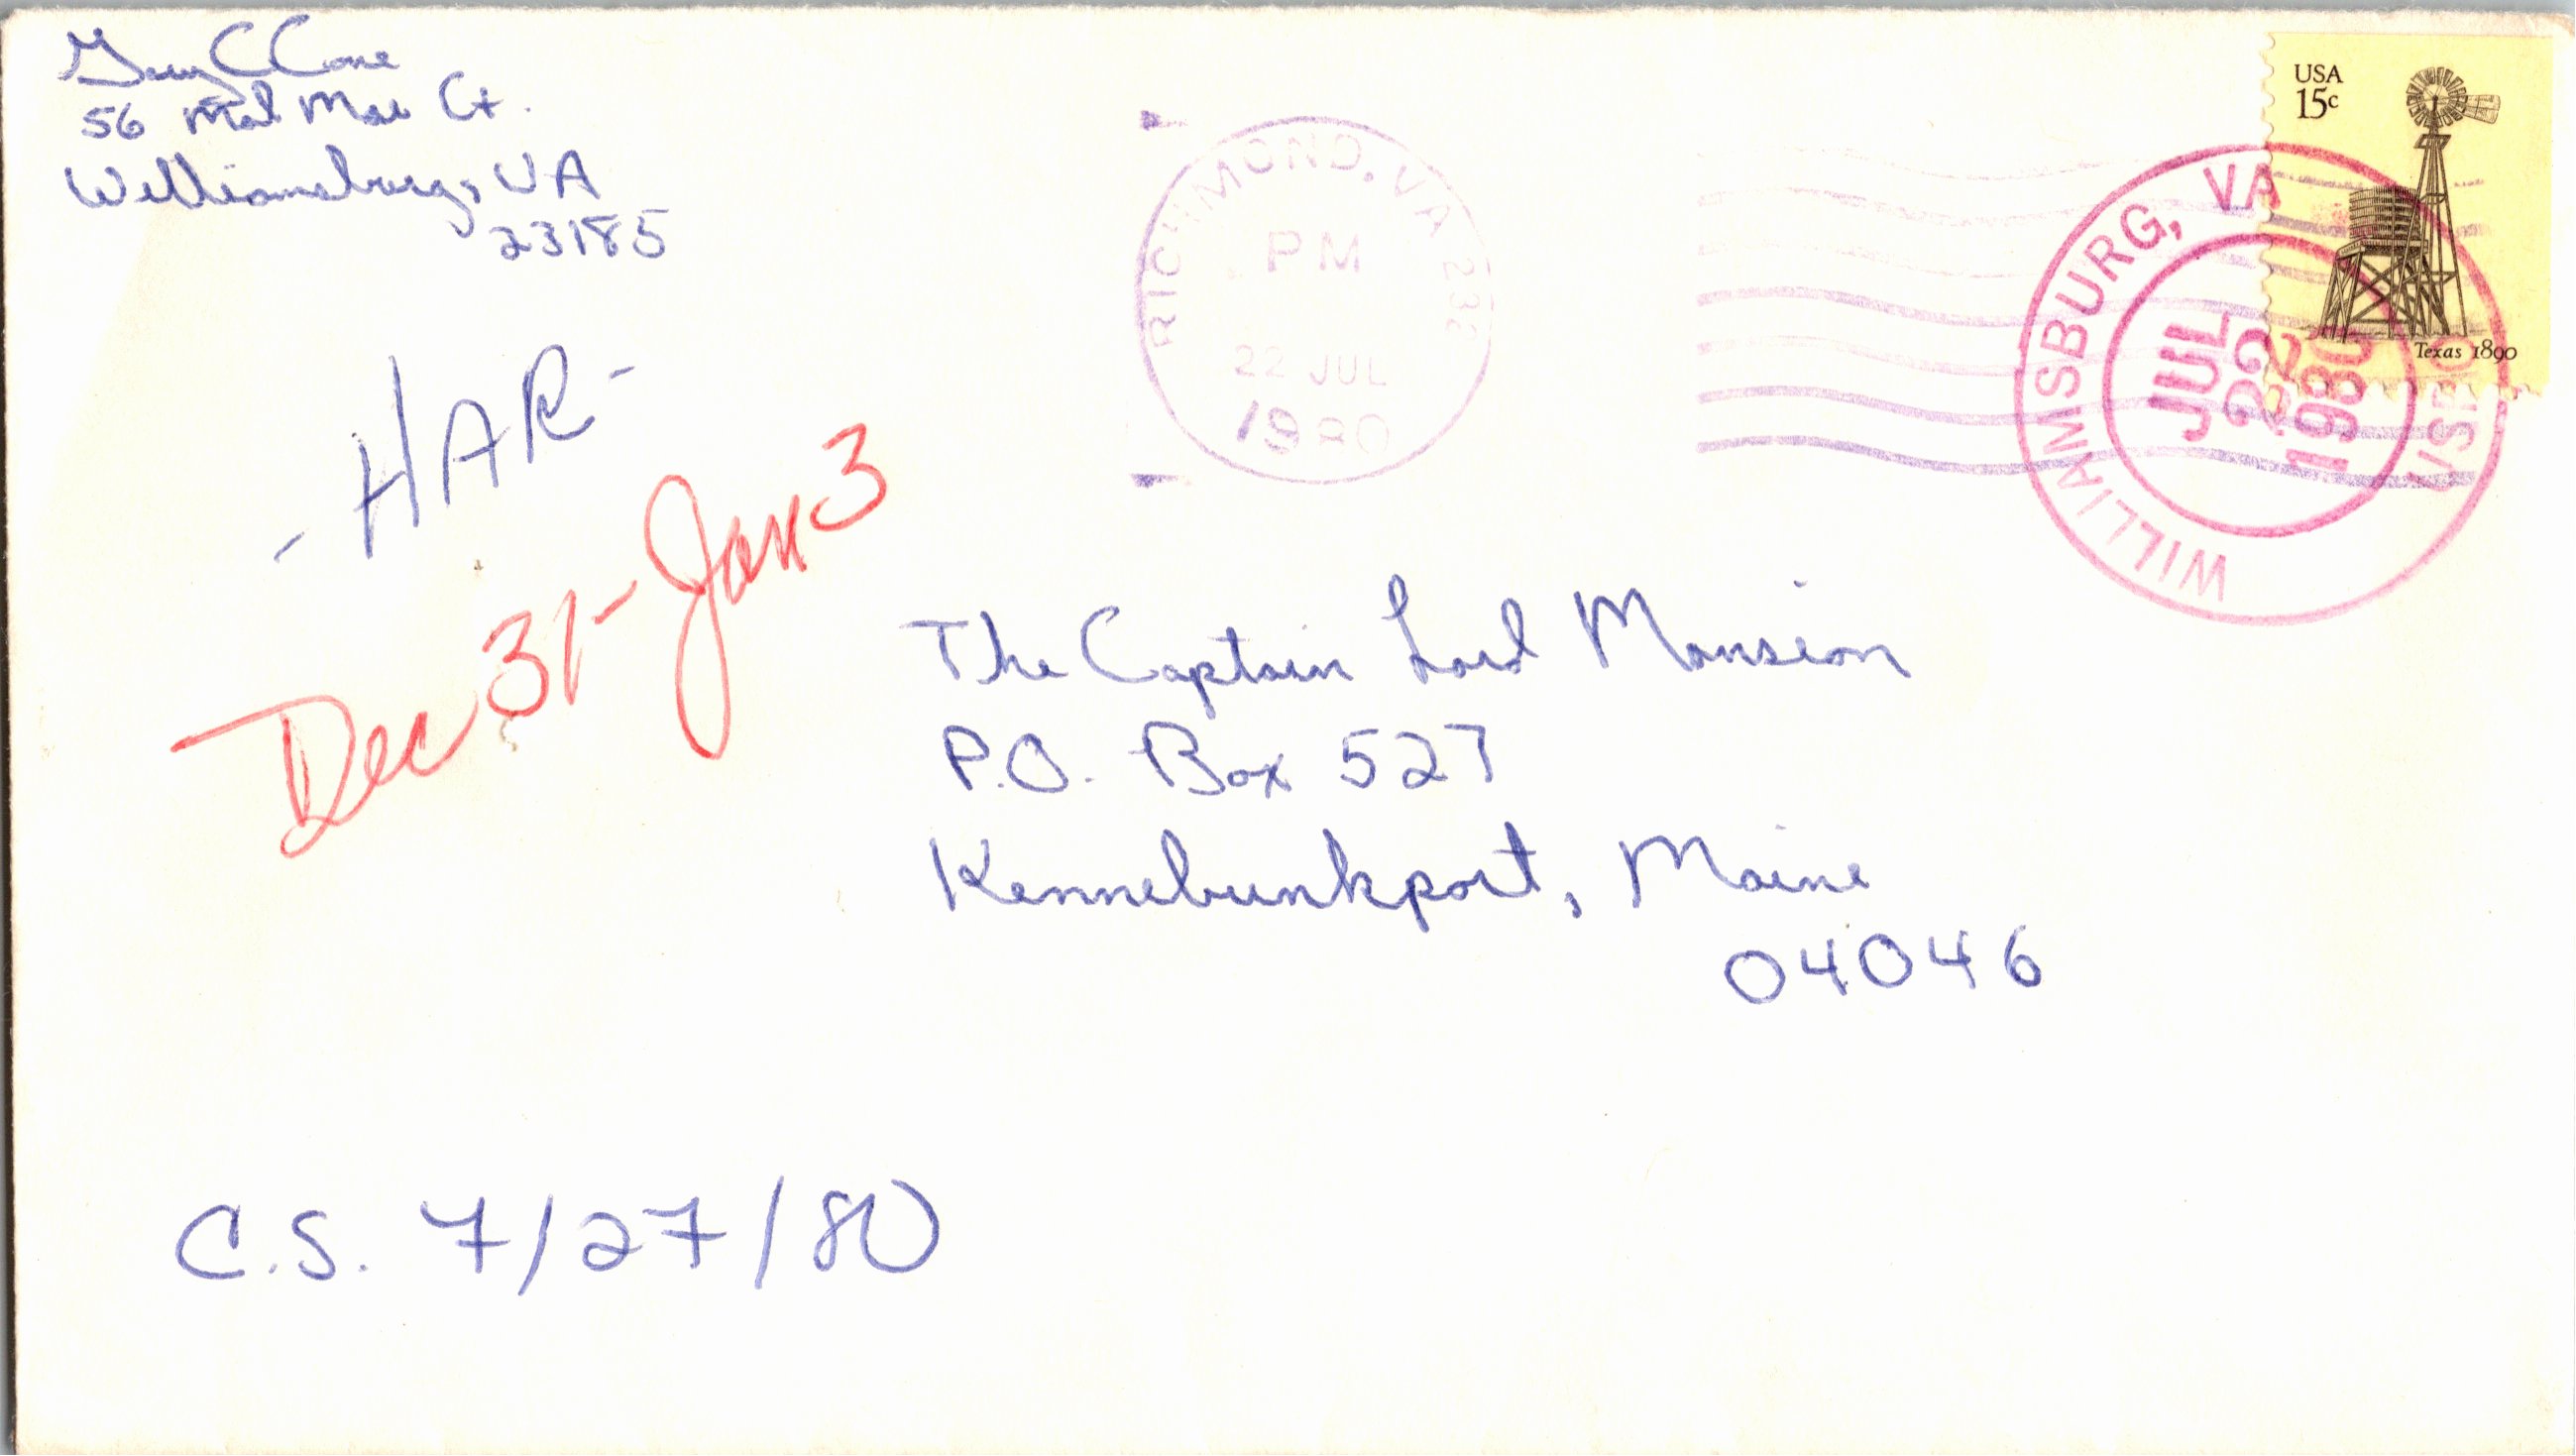 56 Mal Mae Ct.
Williamsburg, VA
23185
USA
15c
Texas 1890
RICHMOND, VA 232
PM
22 JUL
1980
WILLIAMSBURG, VA
USPO
JUL
22
1980
-HAR-
Dec 31-Jan 3
The Captain Lord Mansion
P.O. Box 527
Kennebunkport, Maine
04046
C.S. 7/27/80